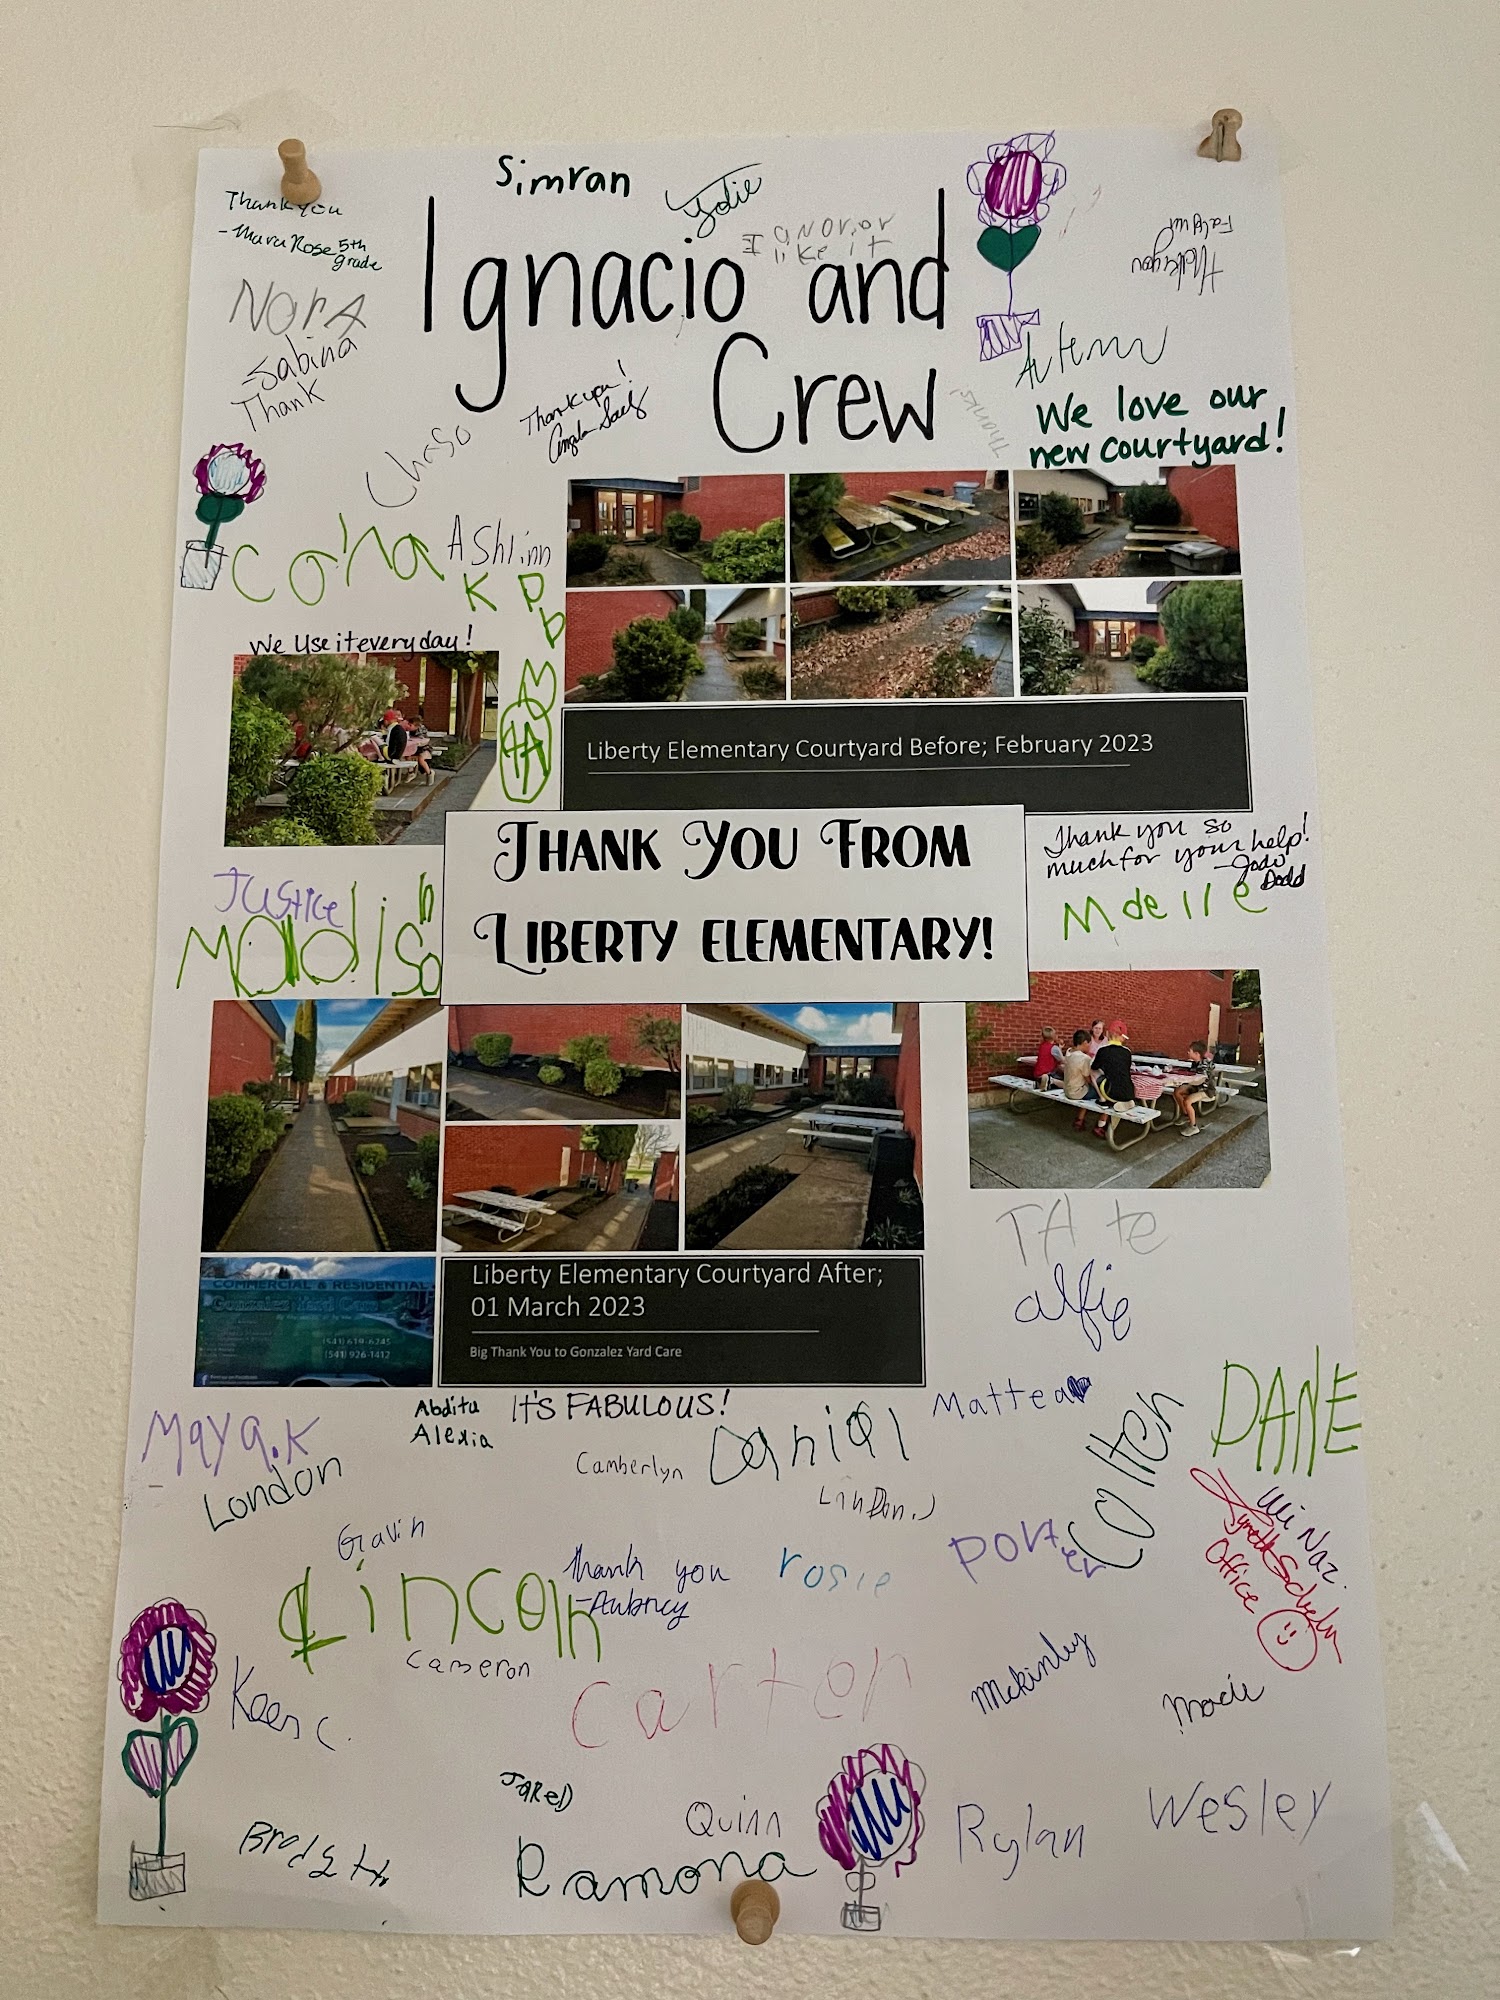 Simran
Jodie
Thank you
- Mara Rose 5th
grade
I
like it
Ignacio and
Crew
NorA
- Sabina
Thank
Thank you!
Thanks!
We love our
new courtyard!
Ashlinn
K
We Use it every day!
Liberty Elementary Courtyard Before; February 2023
Thank You From
Liberty Elementary!
Thank you so
much for your help!
Dodd
Justice
Madison
Liberty Elementary Courtyard After;
01 March 2023
Big Thank You to Gonzalez Yard Care
COMMERCIAL & RESIDENTIAL
Gonzalez Yard Care
(541) 619-6245
(541) 926-1412
TA te
alfie
Maya.K
Abdita
Alexia
It's FABULOUS!
Mattea
DANE
London
Camberlyn
Daniel
Colten
Landon.J
Gavin
Lincoln
Thank you
- Aubrey
rosie
Porter
Office
Cameron
Carter
Mckinley
Macie
JAReD
Quinn
Ramona
Rylan
Wesley